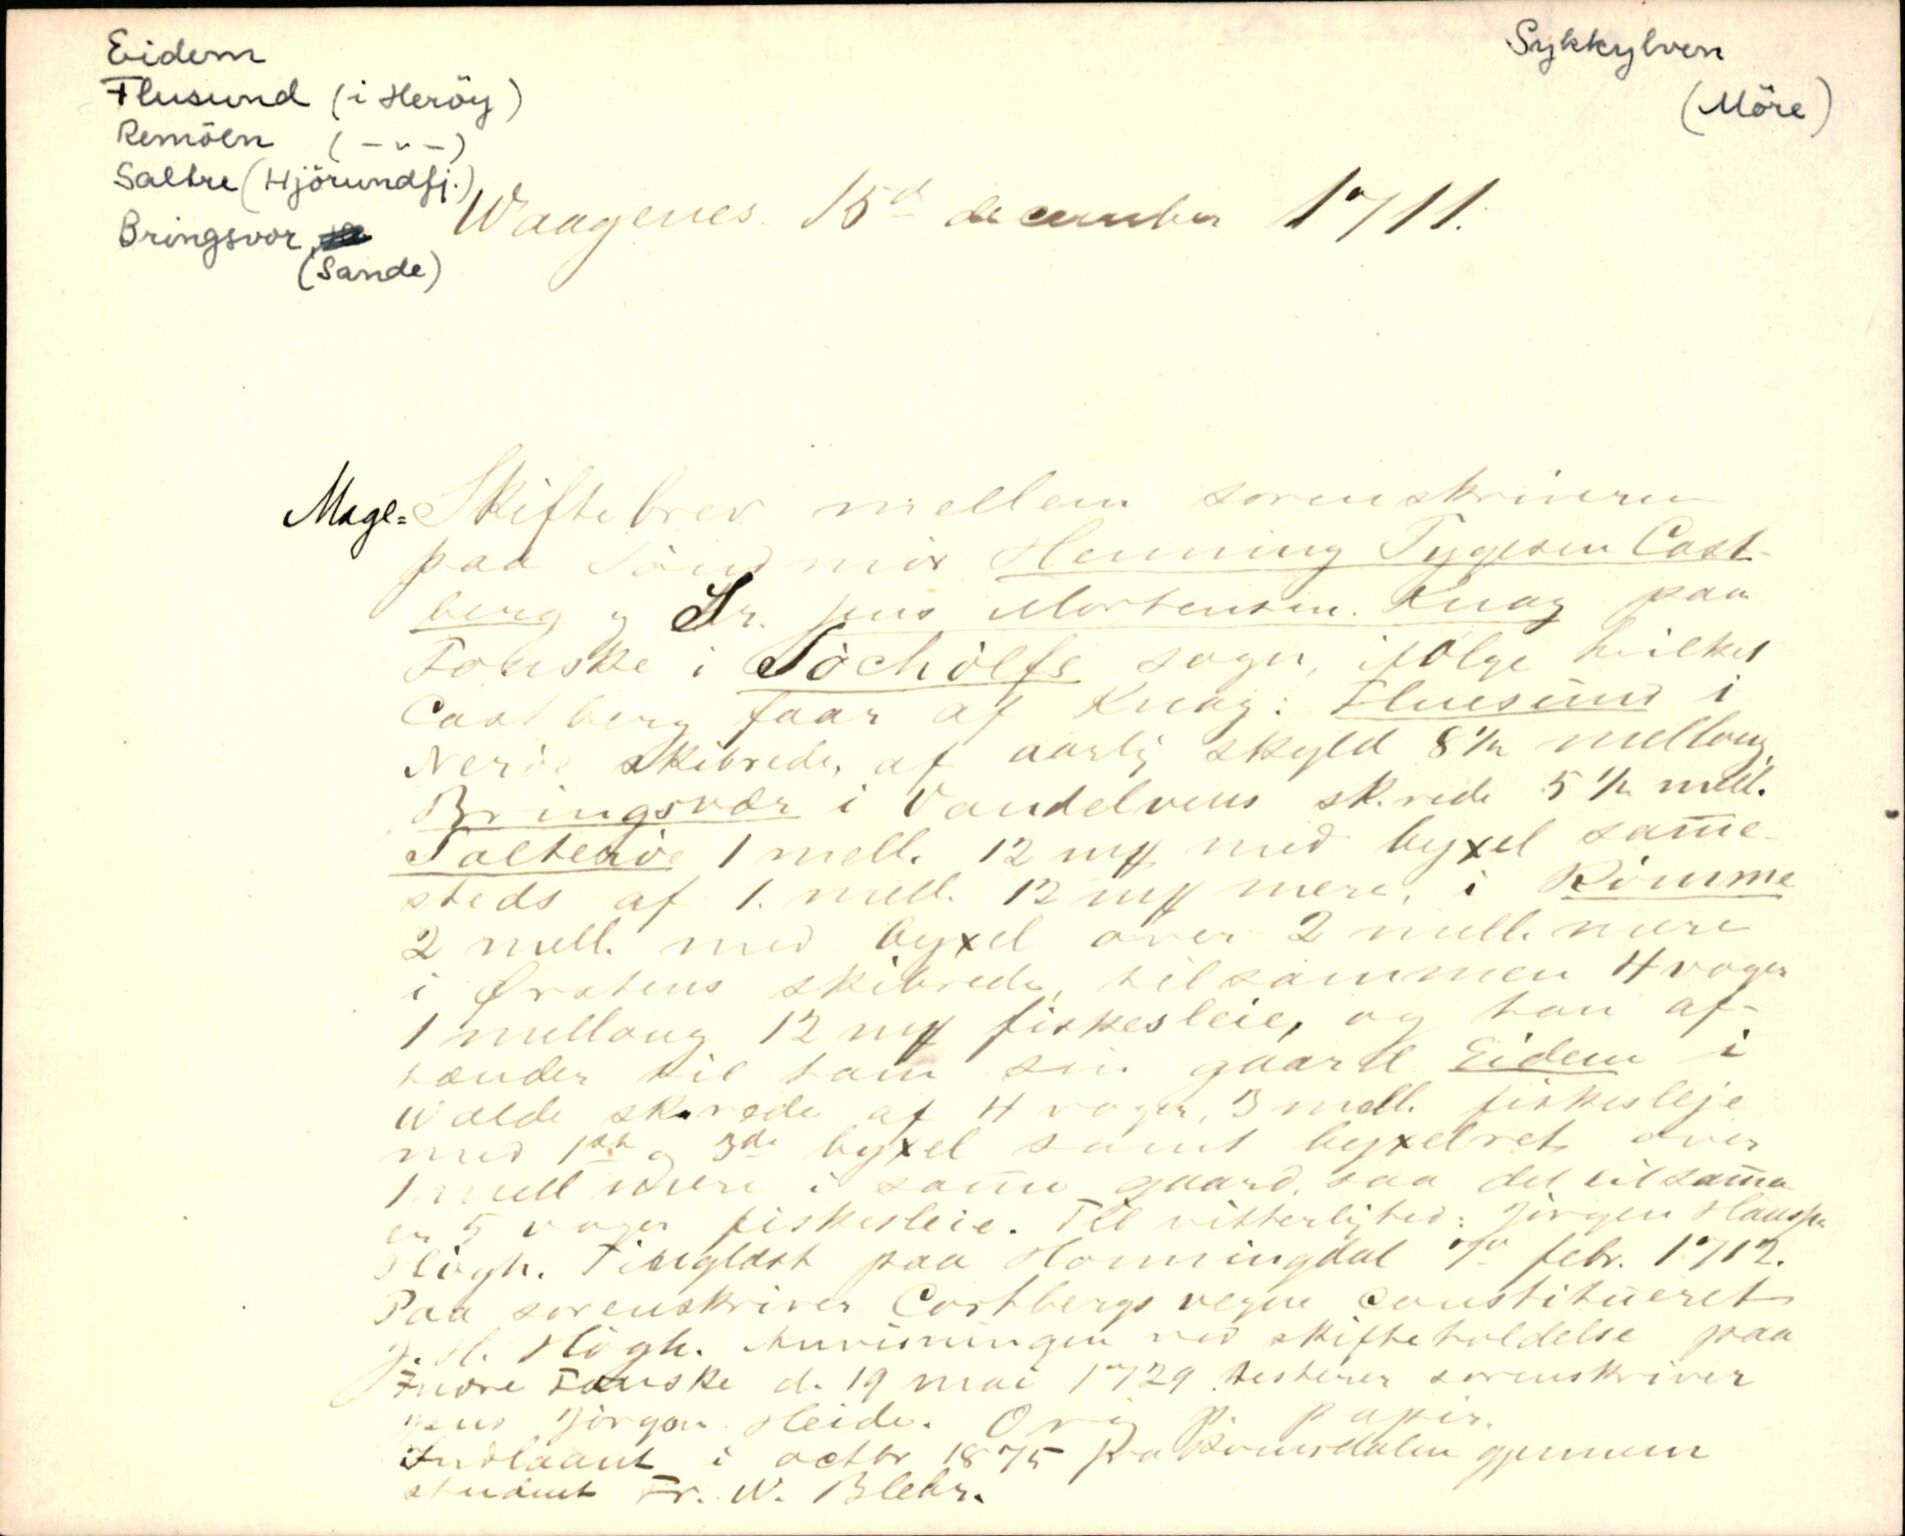 Eidem
Flusund (i Heröy)
Remöen (– " –)
Saltre (Hjörundfj.)
Bringsvor
(Sande)
Sykkylven
(Möre)
Waagenes 15d december 1711.
Mage= Skiftebrev mellem sorenskriveren
paa Söndmör Henning Tygesen Cast-
berg og Sr. Jens Mortensen Knag paa
Fonske i Söchölfs sogn, ifölge hvilket
Castberg faar af Knag: Fluesund i
Heröe skibrede, af aarlig skyld 8 1/2 mellaug,
Bringsvær i Vandelvens sk.rede 5 1/2 mell.
Salteröe 1 mell. 12 mȹ med byxel sam̄e-
steds af 1. mell. 12 mȹ mere, i Römme
2 mell. med byxel over 2 mell. mere
i Ørstens skibrede, tilsammen 4 voger
1 mellaug 12 mȹ fiskesleie, og han af-
hænder til ham sin gaard Eidem i
Walde sk.rede af 4 voger, 3 mell. fiskesleje
med 1ste og 3die byxel samt byxelret over
1 mell mere i sam̄e gaard, saa det tilsam̄a
er 5 voger fiskesleie. Til vitterlighed: Jörgen
Högh. Tinglæst paa Honningdal febr. 1712.
Paa sorenskriver Castbergs vegne constitueret
J. H. Högh. Anvisningen ved skifteholdelse paa
Indre Fauske d. 19 mai 1729 testerer sorenskriver
Jens Jörgen Heide. Orig p. papir.
Indlaant i octbr 1875 fra Romsdalen gjennem
student Fr. W. Blehr.